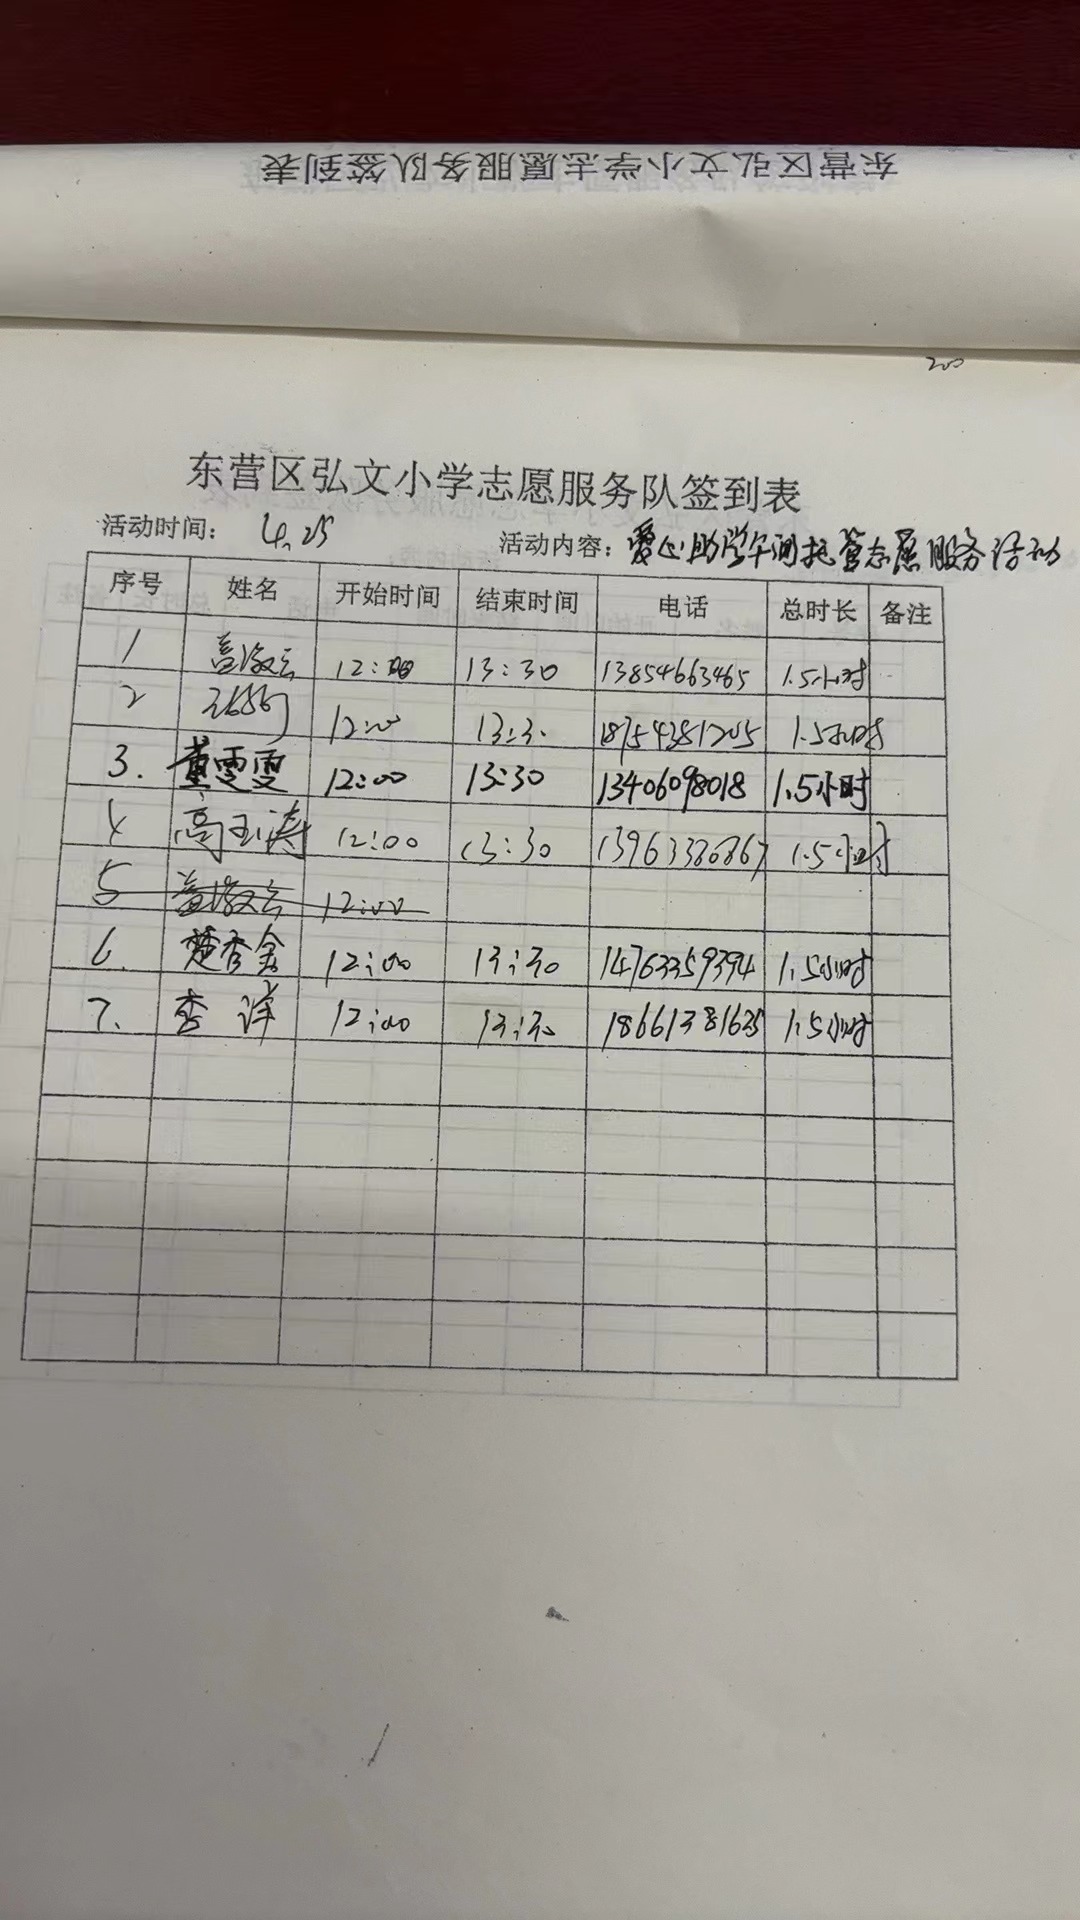 东营区弘文小学志愿服务队签到表
200
东营区弘文小学志愿服务队签到表
活动时间： 4.25 活动内容：爱心助学午间托管志愿服务活动
序号 姓名 开始时间 结束时间 电话 总时长 备注
1 12:00 13:30 13854663465 1.5小时
2 12:00 13:30 18754381205 1.5小时
3. 董雯雯 12:00 13:30 13406098018 1.5小时
4 高玉涛 12:00 13:30 13963380867 1.5小时
5 12:00
6. 楚秀金 12:00 13:30 14763359394 1.5小时
7. 李洋 12:00 13:30 18661381635 1.5小时